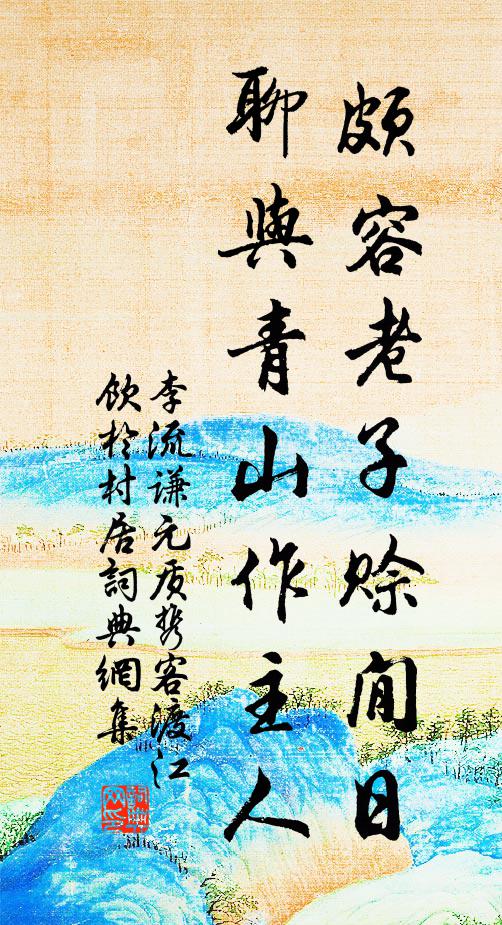 頗容老子賖閒日
聊與青山作主人
李流谦元质携客渡江
飲於村居詞典網集